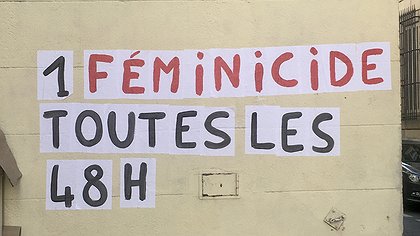 1 FÉMINICIDE
TOUTES LES
48H